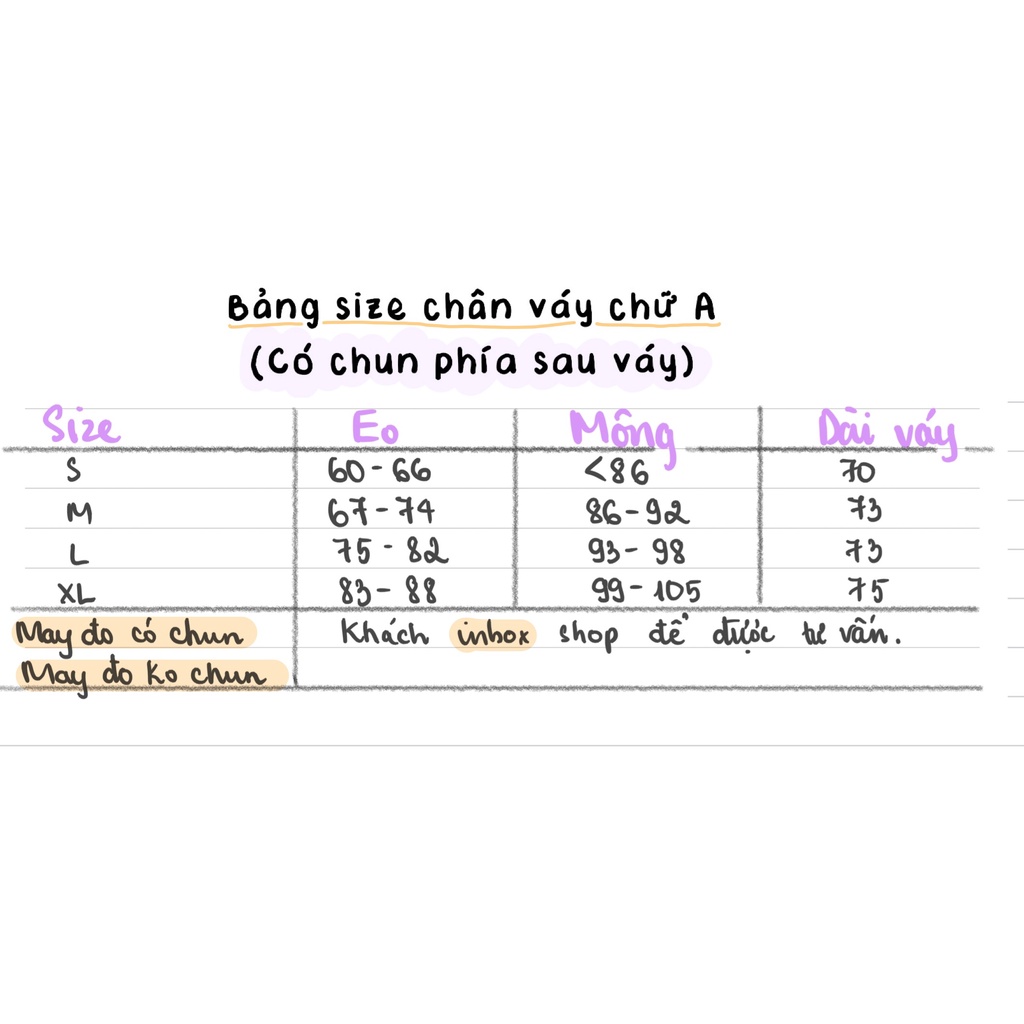 Bảng size chân váy chữ A
(Có chun phía sau váy)
Size Eo Mông Dài váy
S 60-66 <86 70
M 67-74 86-92 73
L 75-82 93-98 73
XL 83-88 99-105 75
May đo có chun Khách inbox shop để được tư vấn.
May đo ko chun